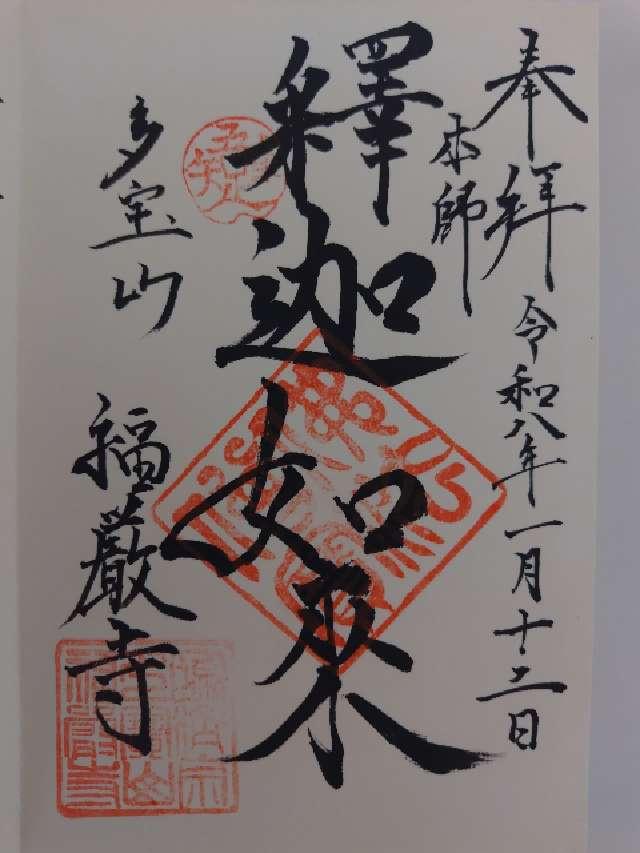 奉拝
令和八年一月十二日
本師
釋迦如来
多宝山
福厳寺